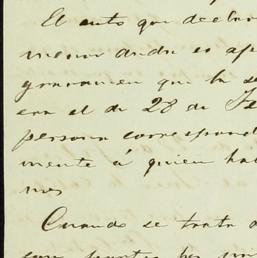 El auto que declar
menor duda es ape
gravamen que la se
era el de 28 de Fe
persona correspond
mente á quien hab
nos
Cuando se trata d